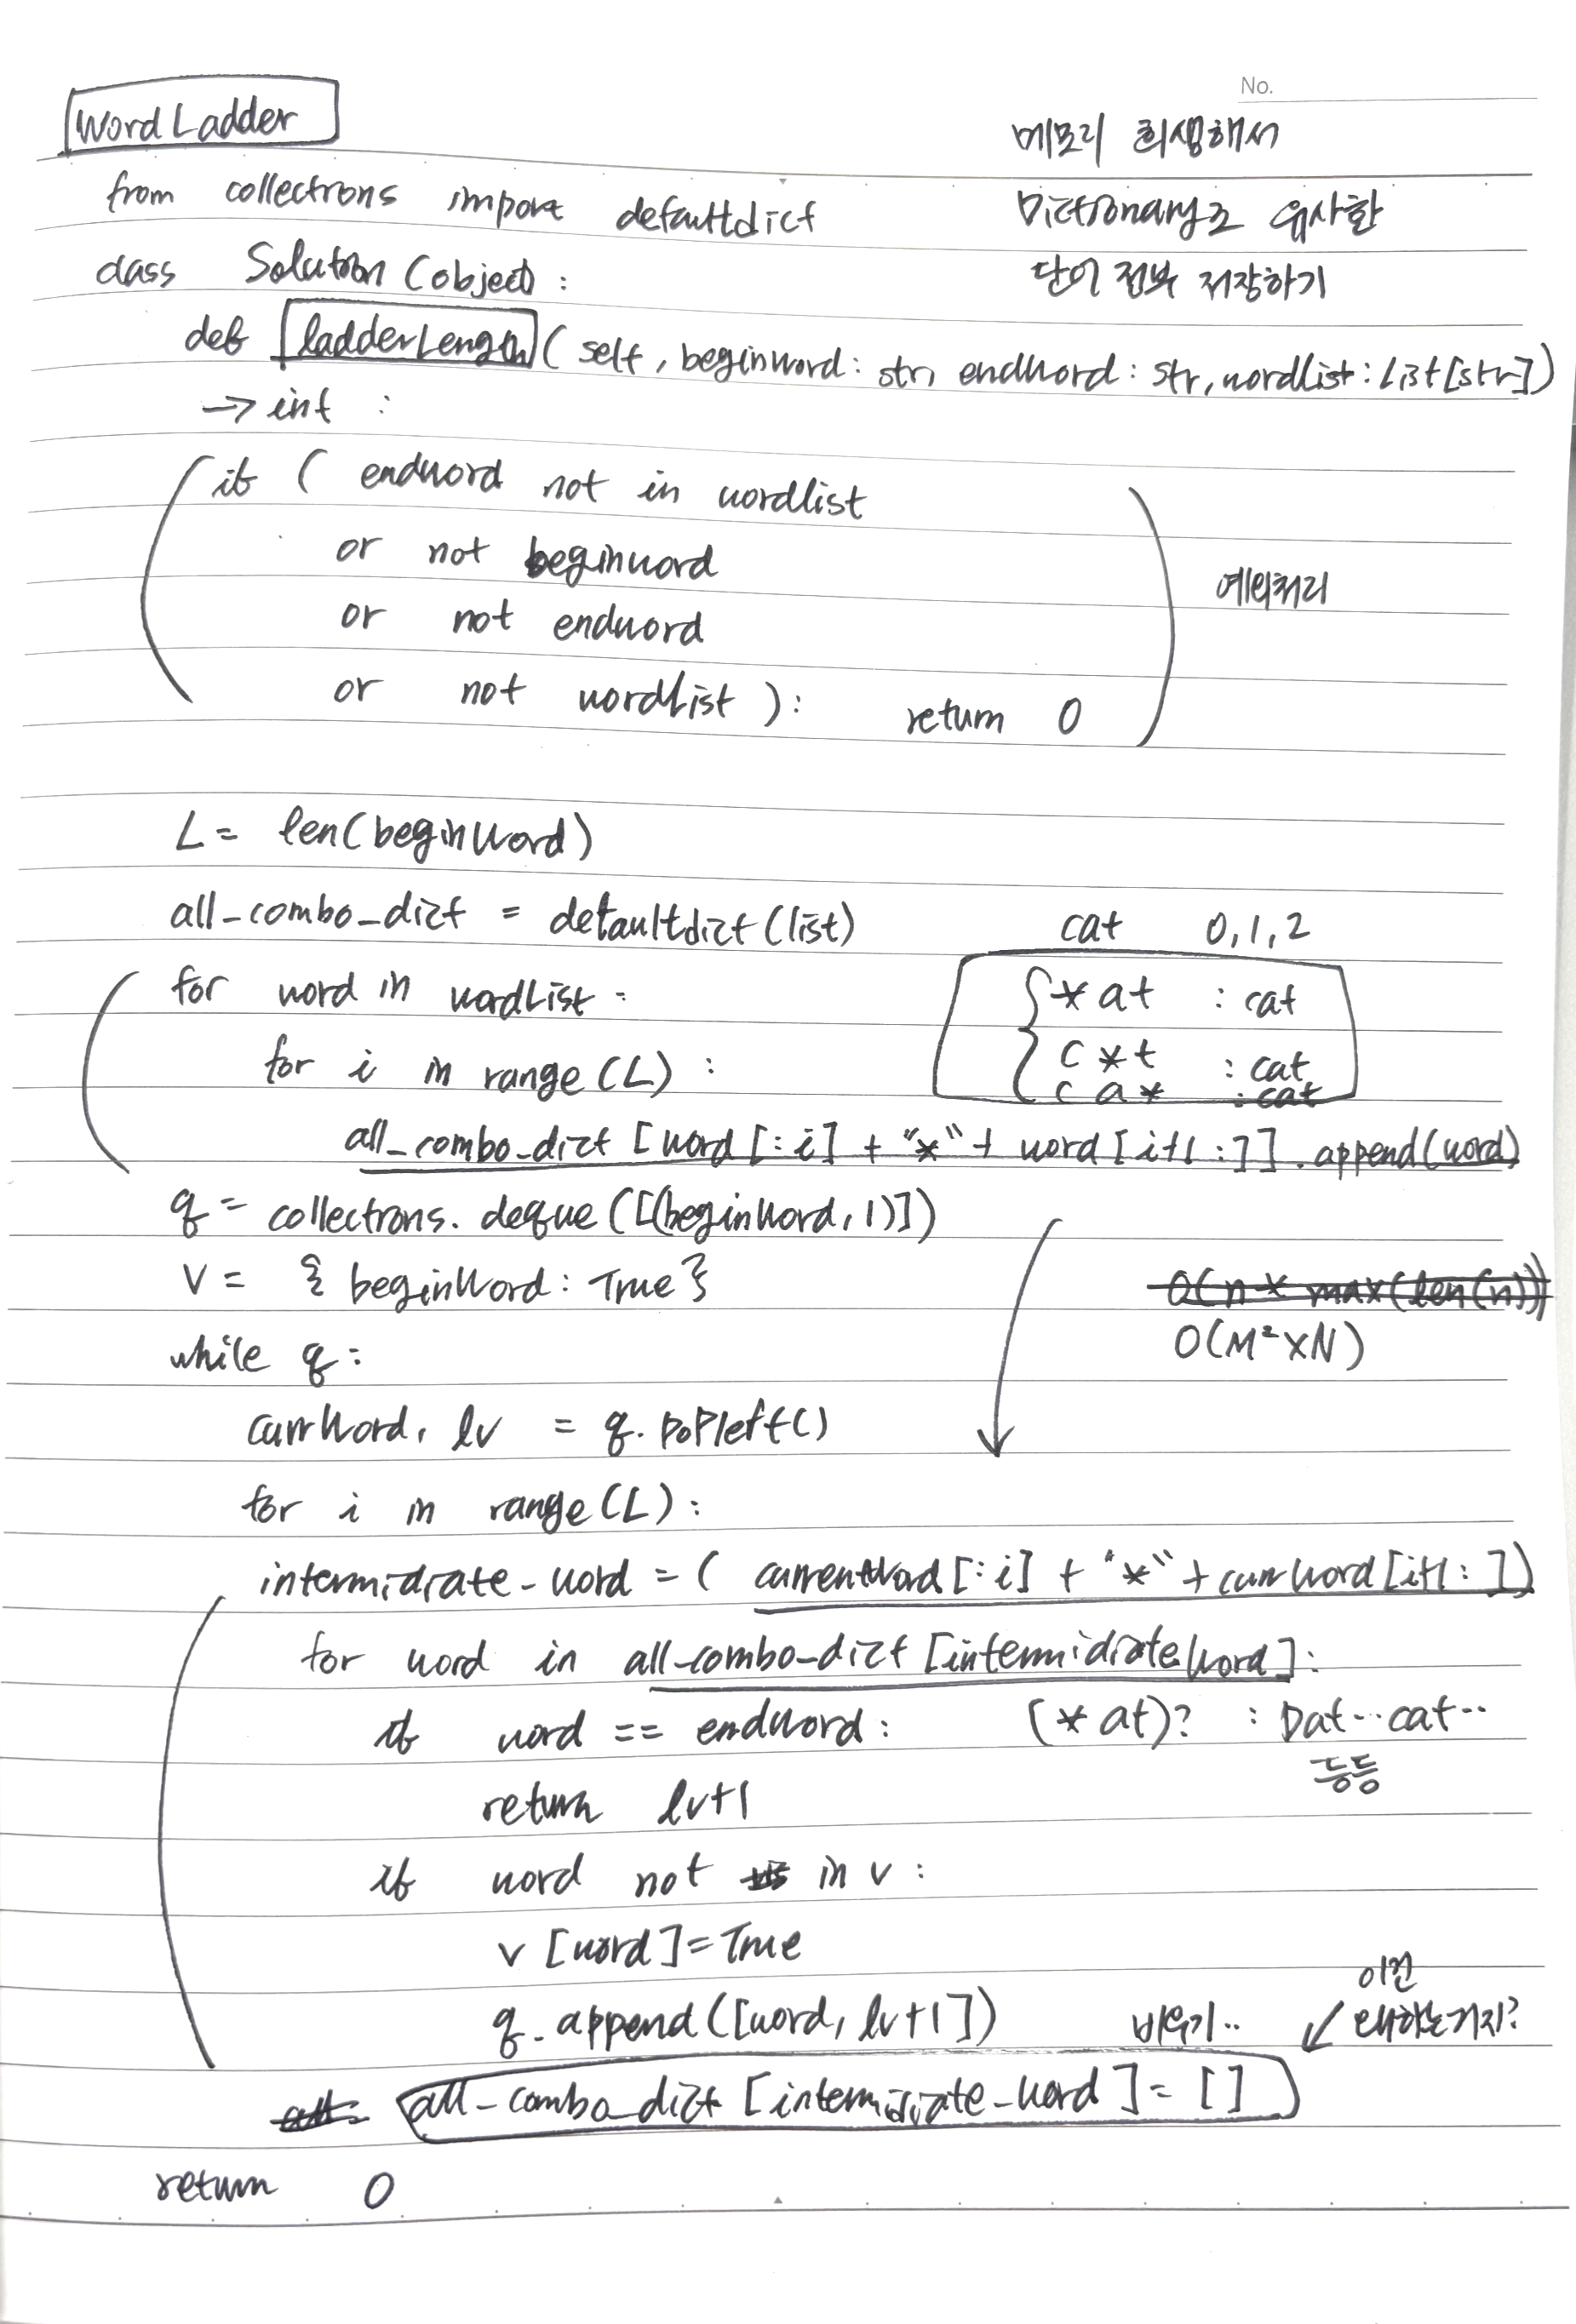 No.
Word Ladder
메모리 희생해서
from collections import defaultdict
Dictionary로 유사한
class Solution (object) :
단어 전부 저장하기
def ladderLength ( self , beginWord : str, endWord : str, wordlist : List[str])
→ int :
if ( endword not in wordlist
or not beginword
예외처리
or not endword
or not wordList ) : return 0
L = len(beginWord)
all_combo_dict = defaultdict(list)
cat 0,1,2
for word in wordList :
*at : cat
for i in range(L) :
c*t : cat
ca* : cat
all_combo_dict [word[:i] + "*" + word[i+1:]] . append(word)
q = collections. deque([(beginWord,1)])
V = { beginWord: True }
O(n * max(len(n)))
while q :
O(M²×N)
currWord, lv = q. popleft()
for i in range(L) :
intermidiate_word = ( currentWord[:i] + "*" + currWord[i+1:])
for word in all_combo_dict [intermidiateWord] :
if word == endWord : (*at)? : Dat.. cat..
등등
return lv+1
if word not in v :
v [word] = True
이건
q. append([word, lv+1]) 비우기.. ↙ 왜하는거지?
all_combo_dict [intermidiate_word] = [ ]
return 0